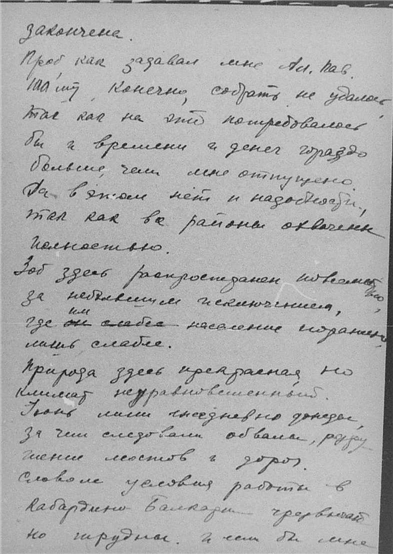 закончена.
Проб как задавал мне Ал. Пав.
конечно, собрать не удалось,
так как на это потребовалось
бы и времени и денег гораздо
больше, чем мне отпущено.
Да в этом нет и надобности,
так как все районы охвачены
полностью.
Зоб здесь распространен повсеместно,
за небольшим исключением,
где им население поражено
лишь слабее.
Природа здесь прекрасная, но
климат неуравновешенный.
Июнь лили ежедневно дожди,
за чем следовали обвалы, разру
шение мостов и дорог.
Словом условия работы в
Кабардино Балкарии чрезвычай
но трудны. и если бы мне